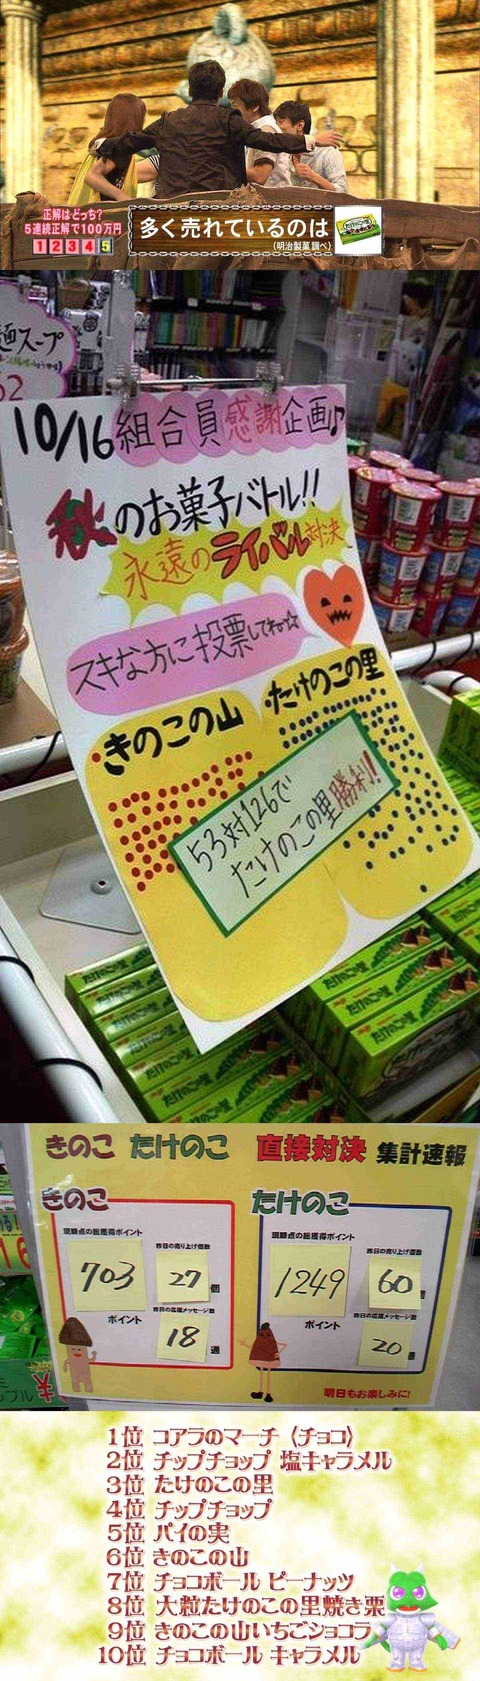 正解はどっち?
5連続正解で100万円
1 2 3 4 5
多く売れているのは
(明治製菓調べ)
たけのこの里
麺スープ
10/16 組合員感謝企画♪
秋のお菓子バトル!!
永遠のライバル対決
スキな方に投票してネ☆
きのこの山
たけのこの里
53対126で
たけのこの里勝利!!
たけのこの里
きのこ たけのこ 直接対決 集計速報
きのこ
現時点の総獲得ポイント
703
ポイント
昨日の売り上げ個数
27
個
昨日の応援メッセージ数
18
通
たけのこ
現時点の総獲得ポイント
1249
ポイント
昨日の売り上げ個数
60
昨日の応援メッセージ数
20
明日もお楽しみに!
1位 コアラのマーチ〈チョコ〉
2位 チップチョップ 塩キャラメル
3位 たけのこの里
4位 チップチョップ
5位 パイの実
6位 きのこの山
7位 チョコボール ピーナッツ
8位 大粒たけのこの里焼き栗
9位 きのこの山いちごショコラ
10位 チョコボール キャラメル